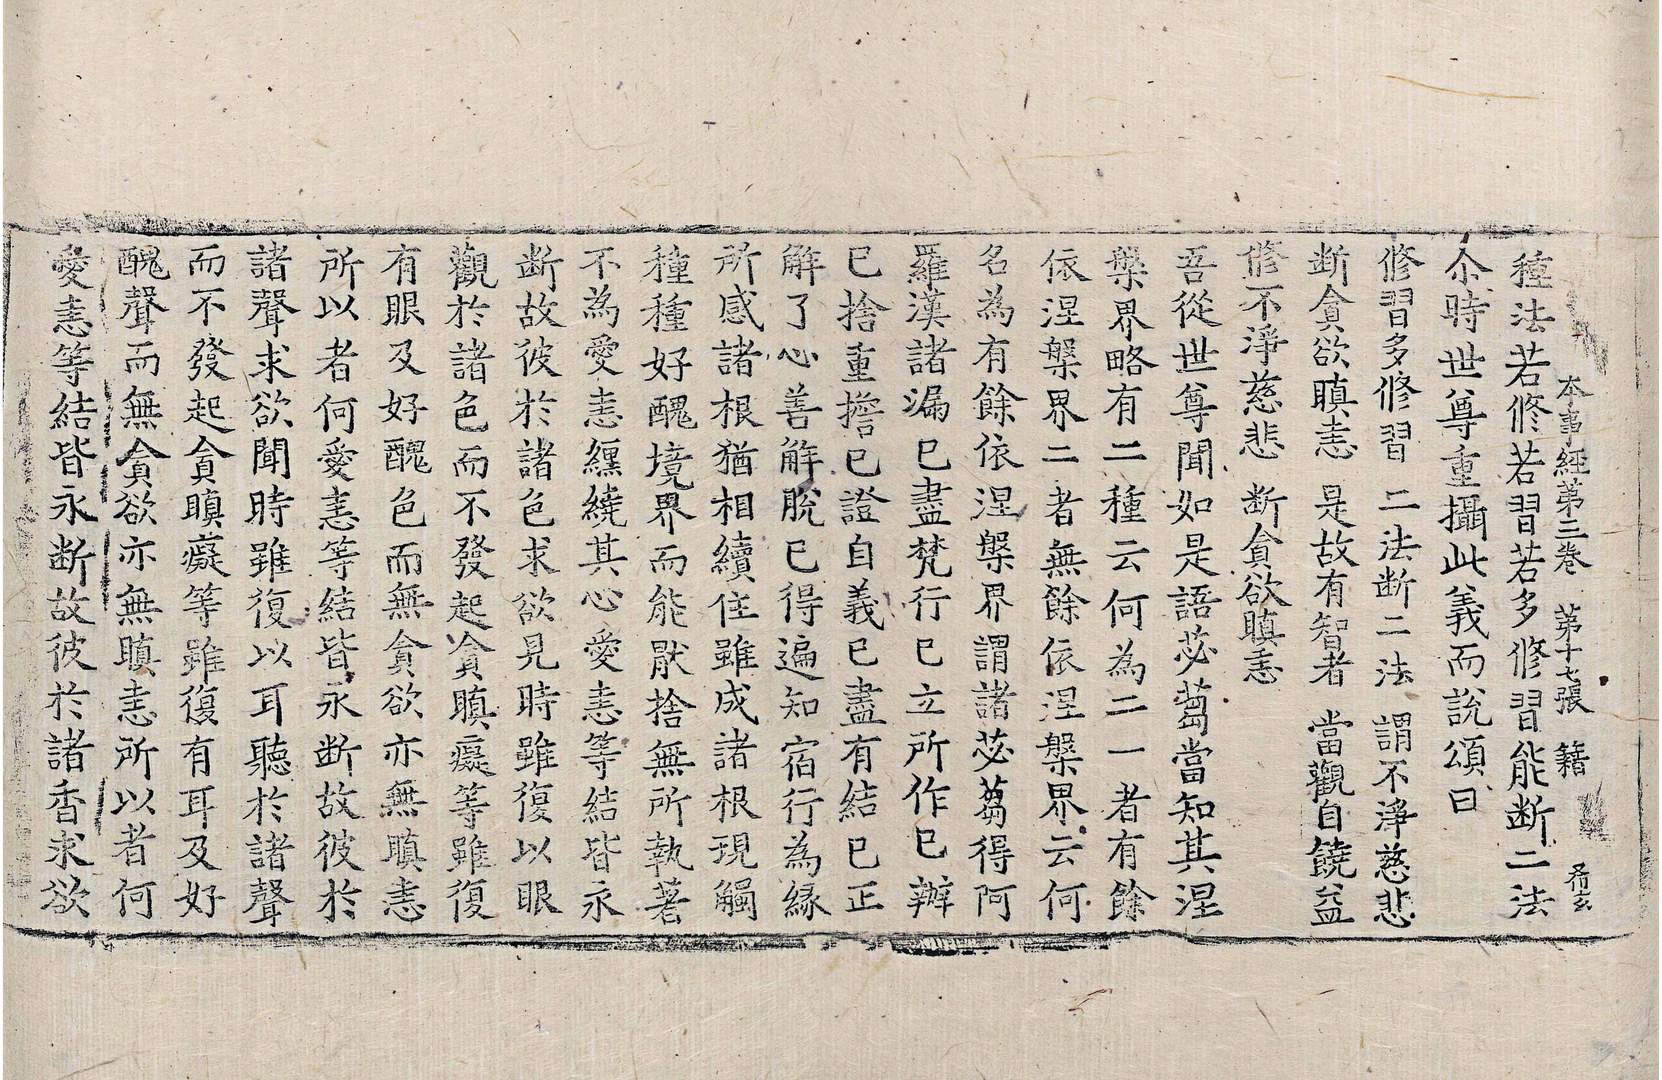 本事經第三卷　第十七張　籍
種法若修若習若多修習能断二法
尒時世尊重攝此義而說頌曰
修習多修習　二法断二法　謂不淨慈悲
断貪欲瞋恚　是故有智者　當觀自饒益
修不淨慈悲　断貪欲瞋恚
吾從世尊聞如是語苾蒭當知其涅
槃界略有二種云何為二一者有餘
依涅槃界二者無餘依涅槃界云何
名為有餘依涅槃界謂諸苾蒭得阿
羅漢諸漏已盡梵行已立所作已辦
已捨重擔已證自義已盡有結已正
解了心善解脫已得遍知宿行為緣
所感諸根猶相續住雖成諸根現觸
種種好醜境界而能厭捨無所執著
不為愛恚纏繞其心愛恚等結皆永
断故彼於諸色求欲見時雖復以眼
觀於諸色而不發起貪瞋癡等雖復
有眼及好醜色而無貪欲亦無瞋恚
所以者何愛恚等結皆永断故彼於
諸聲求欲聞時雖復以耳聽於諸聲
而不發起貪瞋癡等雖復有耳及好
醜聲而無貪欲亦無瞋恚所以者何
愛恚等結皆永断故彼於諸香求欲